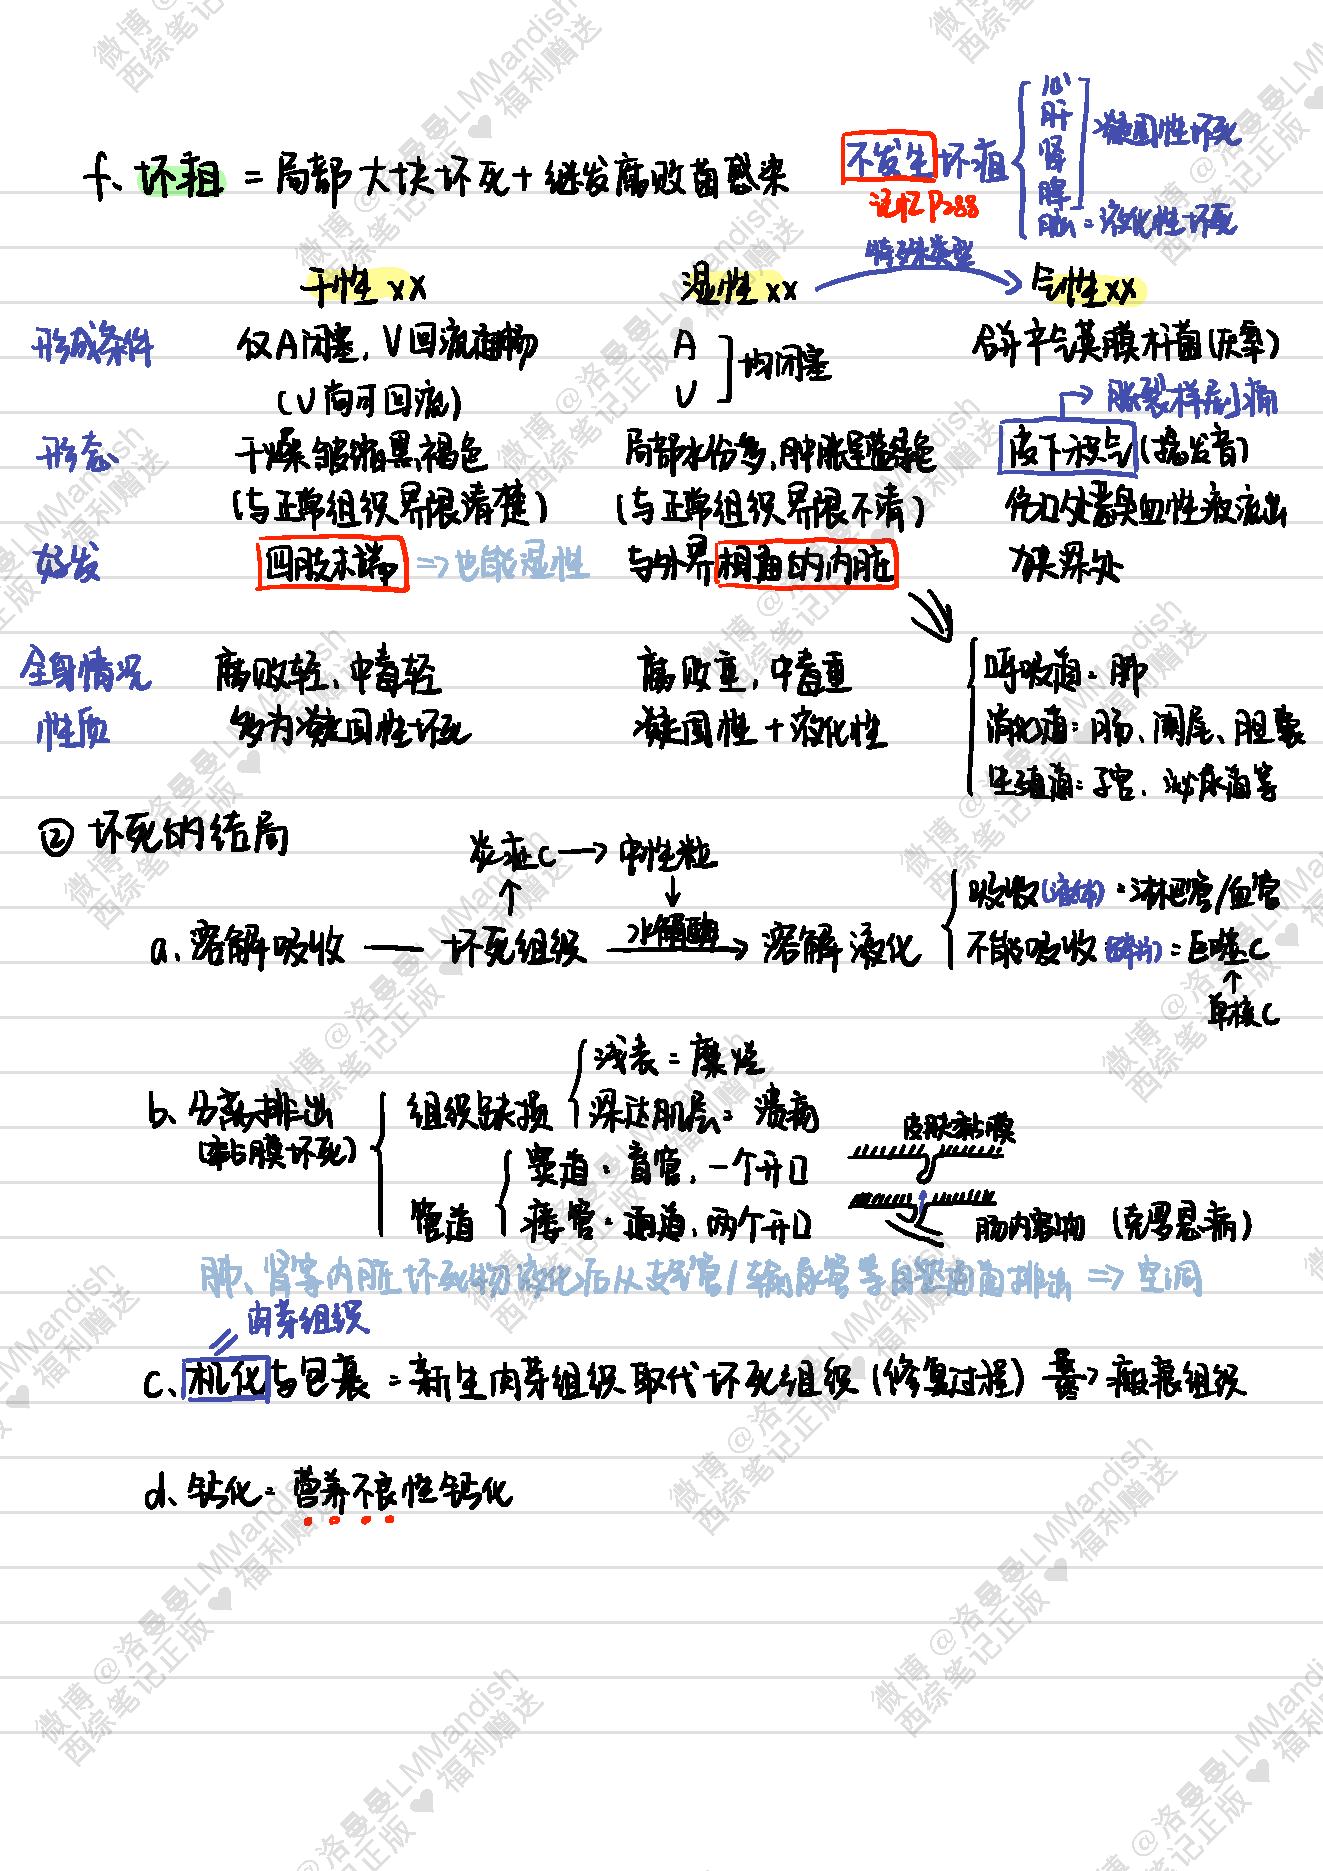 f、坏疽 = 局部大块坏死 + 继发腐败菌感染
不发生坏疽
记忆P288
心
肝
肾
脾
凝固性坏死
脑 = 液化性坏死
特殊类型
干性xx 湿性xx 气性xx
形成条件 仅A闭塞，V回流通畅 A V 均闭塞 合并产气荚膜杆菌(厌氧)
(V尚可回流) 胀裂样剧痛
形态 干燥皱缩黑褐色 局部水份多，肿胀呈蓝绿色 皮下积气(捻发音)
(与正常组织界限清楚) (与正常组织界限不清) 伤口处恶臭血性液流出
好发 四肢末端 => 也能湿性 与外界相通的内脏 肌肉深处
全身情况 腐败轻、中毒轻 腐败重，中毒重
呼吸道：肺
性质 多为凝固性坏死 凝固性 + 液化性
消化道：肠、阑尾、胆囊
生殖道：子宫、泌尿道等
② 坏死的结局
炎症C → 中性粒
↑ ↓
a、溶解吸收 — 坏死组织 水解酶→ 溶解液化
吸收(液体) = 淋巴管/血管
不能吸收(碎片) = 巨噬C
↑
单核C
b、分离排出
(黏膜坏死)
组织缺损
浅表 = 糜烂
深达肌层 = 溃疡
管道
窦道：盲管，一个开口
瘘管：通道，两个开口
皮肤黏膜
肠内容物 (克罗恩病)
肺、肾等内脏坏死物液化后从支气管/输尿管等自然通道排出 => 空洞
肉芽组织
c、机化与包裹 = 新生肉芽组织取代坏死组织(修复过程) 最终→ 瘢痕组织
d、钙化：营养不良性钙化
微博@洛曼曼LMMandish
西综笔记正版♥福利赠送